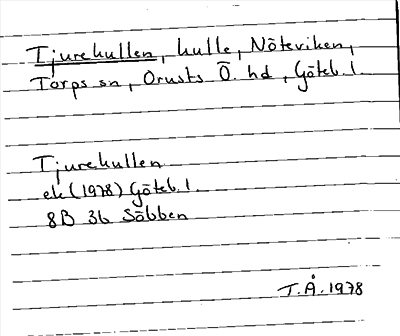 Tjurekullen, kulle, Nöteviken,
Torps sn, Orusts Ö. hd, Göteb. l.
Tjurekullen
ek (1978) Göteb. l.
8B 3b Säbben
T.Å. 1978